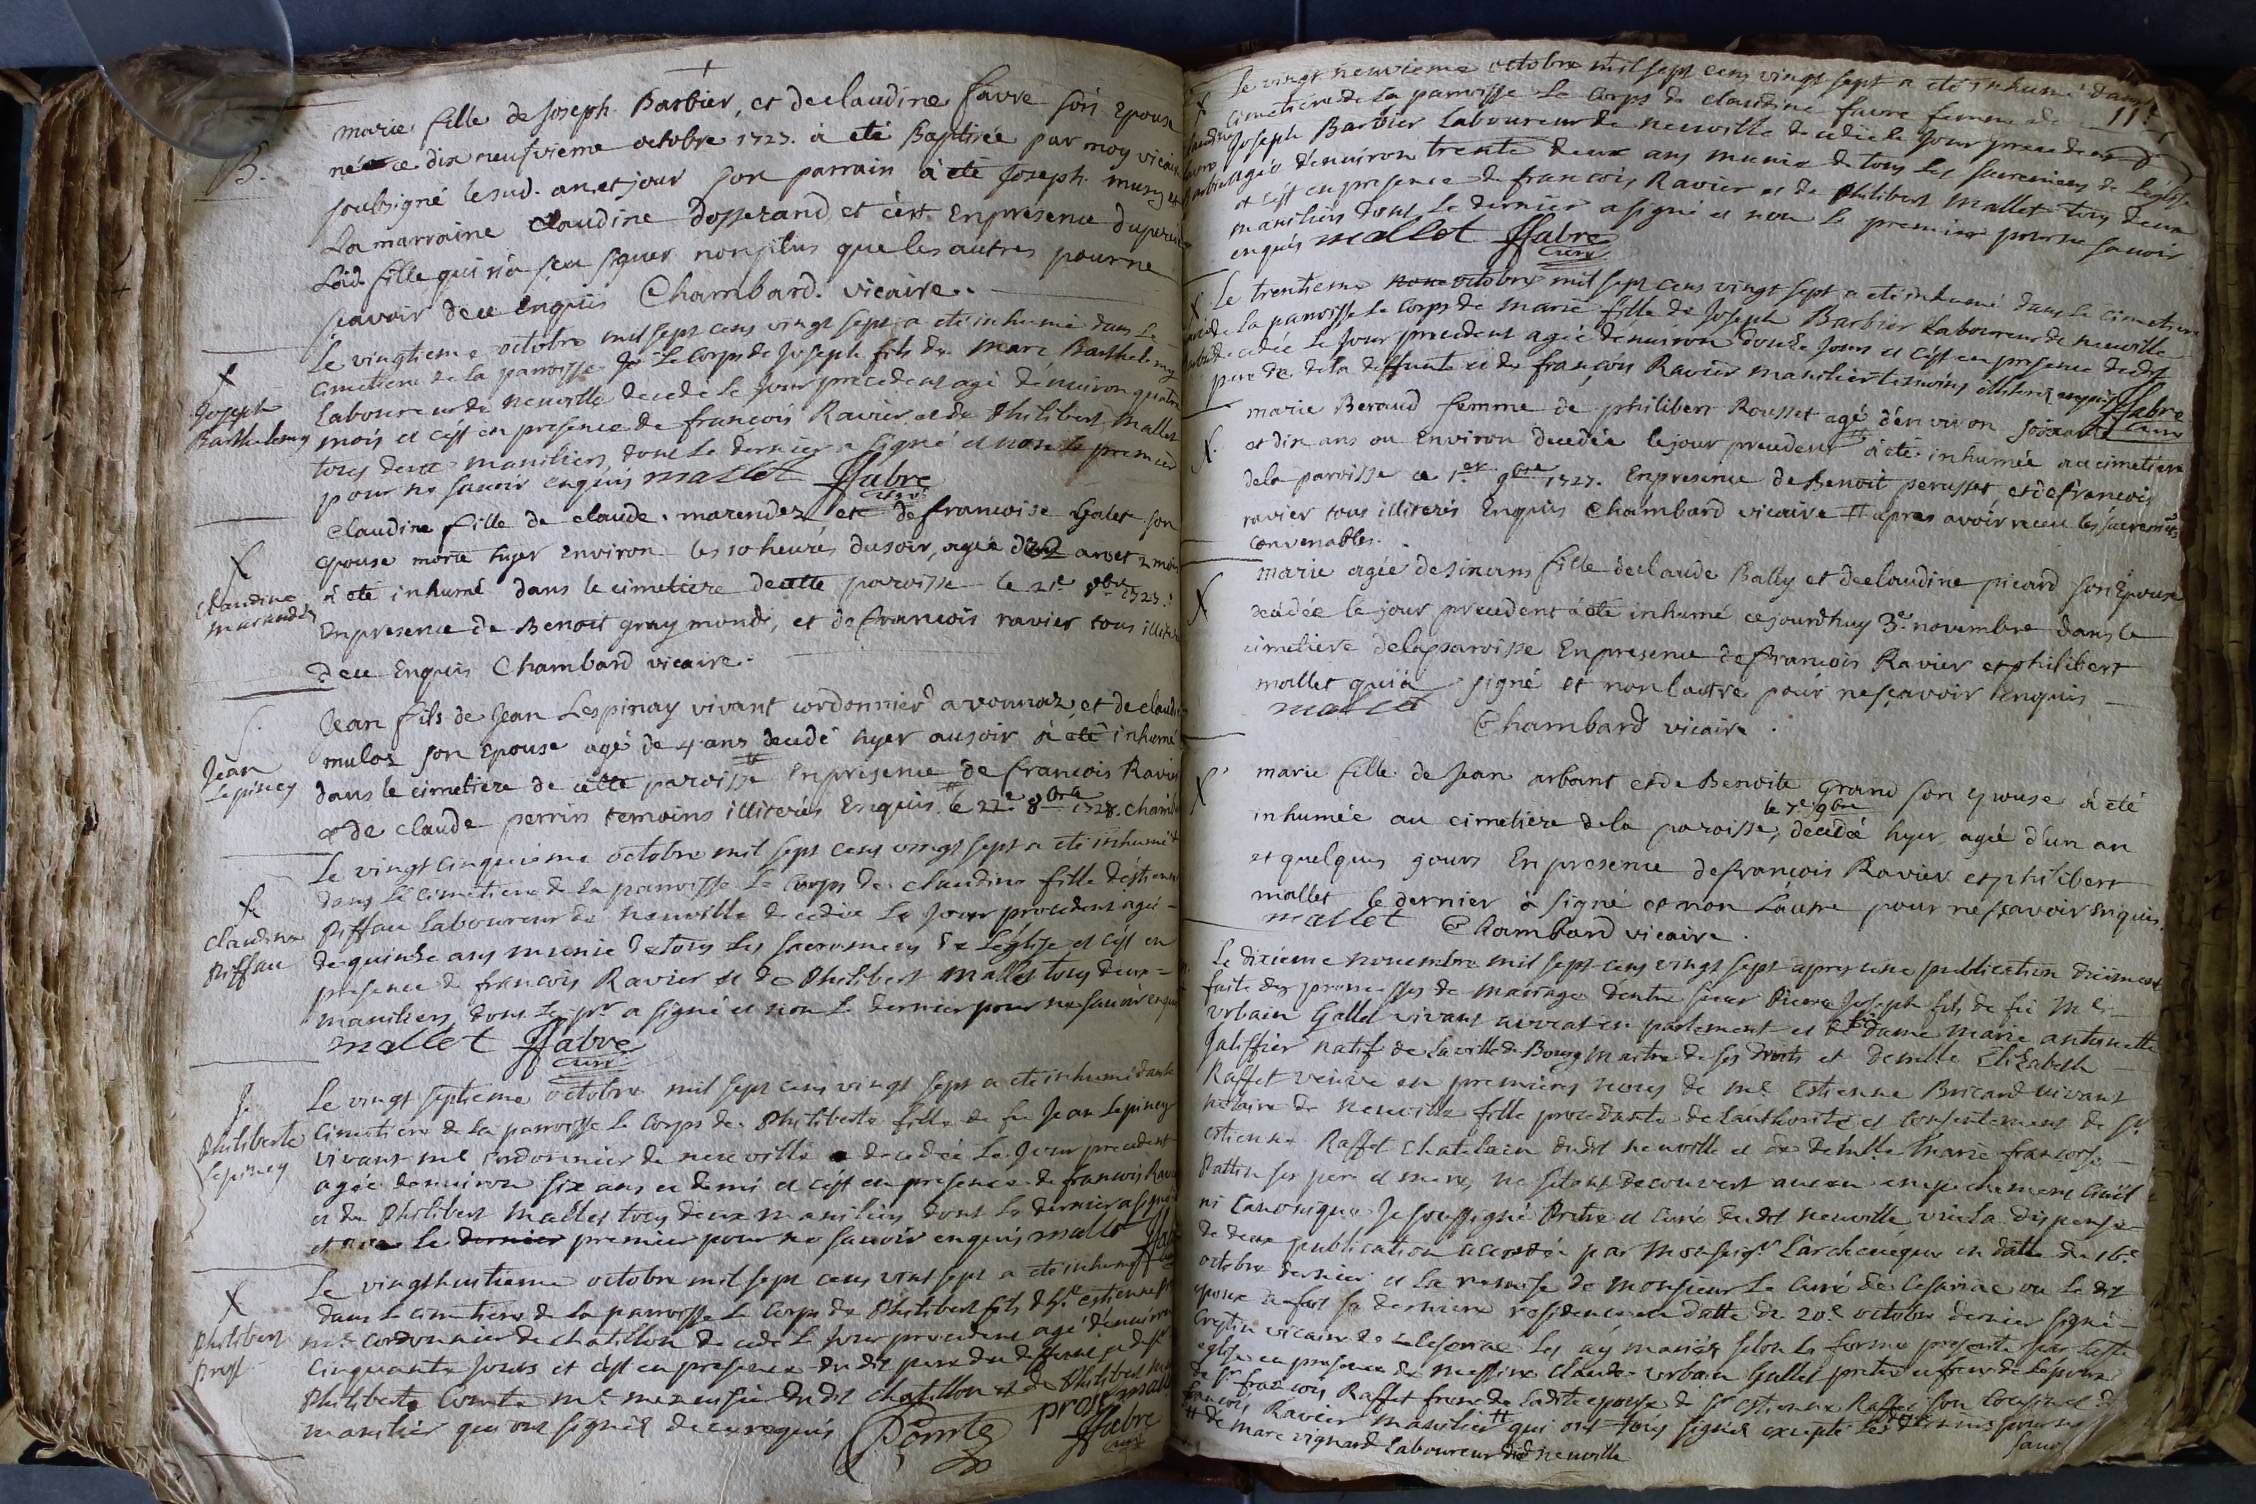 B.
marie fille de Joseph Barbier, et de claudine favre son Epouse
née ce dix neufvieme octobre 1727. à eté Baptisée par moy vicaire
soubsigné le sud. an et jour son parrain à eté Joseph musy et
La marraine claudine dosserand et c'est En presence du pere de
Lad. fille qui n'a sceu signer non plus que les autres pour ne
scavoir de ce Enquis Chambard. vicaire.
Joseph
Barthelemy
Le vingtieme octobre mil sept cens vingt sept a eté inhumé dans Le
cimetiere de la parroisse Le Corps de Joseph fils de Marc Barthelemy
Laboureur de neuville decedé le jour precedent agé d'environ quatre
mois et c'est en presence de francois Ravier et de Philibert Mallet
tous deux maniliers dont Le dernier a signé et non le premier
pour ne savoir enquis mallet ffabre
curé
Claudine
marandet
Claudine fille de claude marendez et de francoise Galet son
epouse morte hyer environ les 10 heures du soir, agée d'un an et 2 mois
à eté inhumé dans le cimetiere de cette paroisse le 21e 8bre 1727.
En presence de Benoit graymond, et de francois ravier tous
de ce Enquis Chambard vicaire.
Jean
Lepiney
Jean fils de Jean Lespinay vivant cordonnier a vonnaz, et de claudine
muloz son Epouse agé de 4 ans decedé hyer au soir à eté inhumé
dans le cimetiere de cette paroisse En presence de francois Ravier
et de claude perrin temoins illiterés Enquis le 22e 8bre
Claudine
Piffau
Le vingt cinquieme octobre mil sept cens vingt sept a eté inhumé
dans le cimetiere de la parroisse Le Corps de claudine fille d'estienne
Piffau Laboureur de neuville decedée Le jour precedent agée
de quinze ans munie de tous Les sacremens de L'eglise et c'est en
presence de francois Ravier et de Philibert Mallet tous deux
maniliers dont Le pr a signé et non Le dernier pour ne savoir enquis
mallet ffabre
curé
Philiberte
Lepiney
Le vingt septieme octobre mil sept cens vingt sept a eté inhumé dans le
Cimetiere de La parroisse Le Corps de Philiberte fille de fu Jean Lepiney
vivant me cordonnier de neuville decedée Le Jour precedent
agée d'environ six ans et demi et c'est en presence de francois Ravier
et de Philibert Mallet tous deux maniliers dont Le dernier a signé
et non Le dernier premier pour ne savoir enquis mallet
Philibert
Prost
Le vingthuitieme octobre mil sept cens vint sept a eté inhumé
dans Le cimetiere de La parroisse Le Corps de Philibert fils d'hte estienne
me cordonnier de chatillon decedé Le jour precedent agé d'environ
Cinquante Jours et c'est en presence du dit pere du deffunt
Philiberte Comte me menuisier du dit chatillon et de Philibert
manilier qui ont signés de ce requis Comte prost mallet
ffabre
curé
11
Le vingt neuvieme octobre mil sept cens vingt sept a eté inhumé dans le
cimetiere de La parroisse Le Corps de claudine favre femme de
Joseph Barbier Laboureur de neuville decedée le Jour precedent
agée d'environ trente deux ans munie de tous Les sacremens de L'eglise
et c'est en presence de francois Ravier et de Philibert Mallet tous deux
maniliers dont Le dernier a signé et non Le premier pour ne savoir
enquis mallet ffabre
curé
Le trentieme octobre mil sept cens vingt sept a eté inhumé dans Le cimetiere
de La parroisse Le Corps de Marie fille de Joseph Barbier Laboureur de neuville
decedée Le Jour precedent agée d'environ douze Jours et c'est en presence du dit
pere de la deffunte et de francois Ravier manilier temoins illiterés enquis ffabre
curé
marie Beraud femme de philibert Rousset agé d'environ soixante
et dix ans ou Environ decedée le jour precedent à eté inhumée au cimetiere
de la paroisse ce 1er 9bre 1727. En presence de Benoit perusset, et de francois
ravier tous illiterés Enquis Chambard vicaire # apres avoir receu les sacremts
convenables.
marie agée de six ans fille de claude Bally et de claudine picard son Epouse
decedée le jour precedent à eté inhumé ce jourdhuy 3e novembre dans le
cimetiere de la paroisse En presence de francois Ravier et philibert
mallet qui à signé et non l'autre pour ne scavoir Enquis
mallet
Chambard vicaire.
marie fille de Jean arbant et de Benoite Grand son epouse à eté
le 7e 9bre
inhumée au cimetiere de la paroisse, decedée hyer agée d'un an
et quelques jours En presence de francois Ravier et philibert
mallet le dernier à signé et non L'autre pour ne scavoir Enquis.
mallet Chambard vicaire.
Le dixieme novembre mil sept cens vingt sept apres une publication duëment
faite des promesses de mariage d'entre sieur Pierre Joseph fils de fu Me
Urbain Gallet vivant avocat en parlement et de dame Marie antoinette
Jaliffier natif de la ville de Bourg maitre de ses droits et demelle Elizabeth
Raffet veuve en premieres noces de me Estienne Bricard vivant
notaire de neuville fille procedante de l'authorité et consentement de Sr
estienne Raffet chatelain dudit neuville et de demlle Marie francoise
Rattin ses pere et mere, ne s'etant decouvert aucun empechement civil
ni Canonique Je soussigné Pretre et curé dudit neuville vû la dispense
de deux publication accordée par Monseigr L'archeveque en datte du 16e
octobre dernier et la remise de monsieur Le curé de Ceseriac ou Le dit
epoux a fait sa derniere residence en datte du 20e octobre dernier signé
Crestin vicaire de Ceseriac Les ay mariés selon La forme prescrite par L'este
eglise en presence de messire Claude Urbain Gallet pretre et frere de L'epoux
de Sr francois Raffet frere de Ladite epouse de Sr Estienne Raffet son Cousin et de
francois Ravier manilier # qui ont tous signés excepté Les derniers pour ne
# de marc vignard Laboureur dud neuville savoir